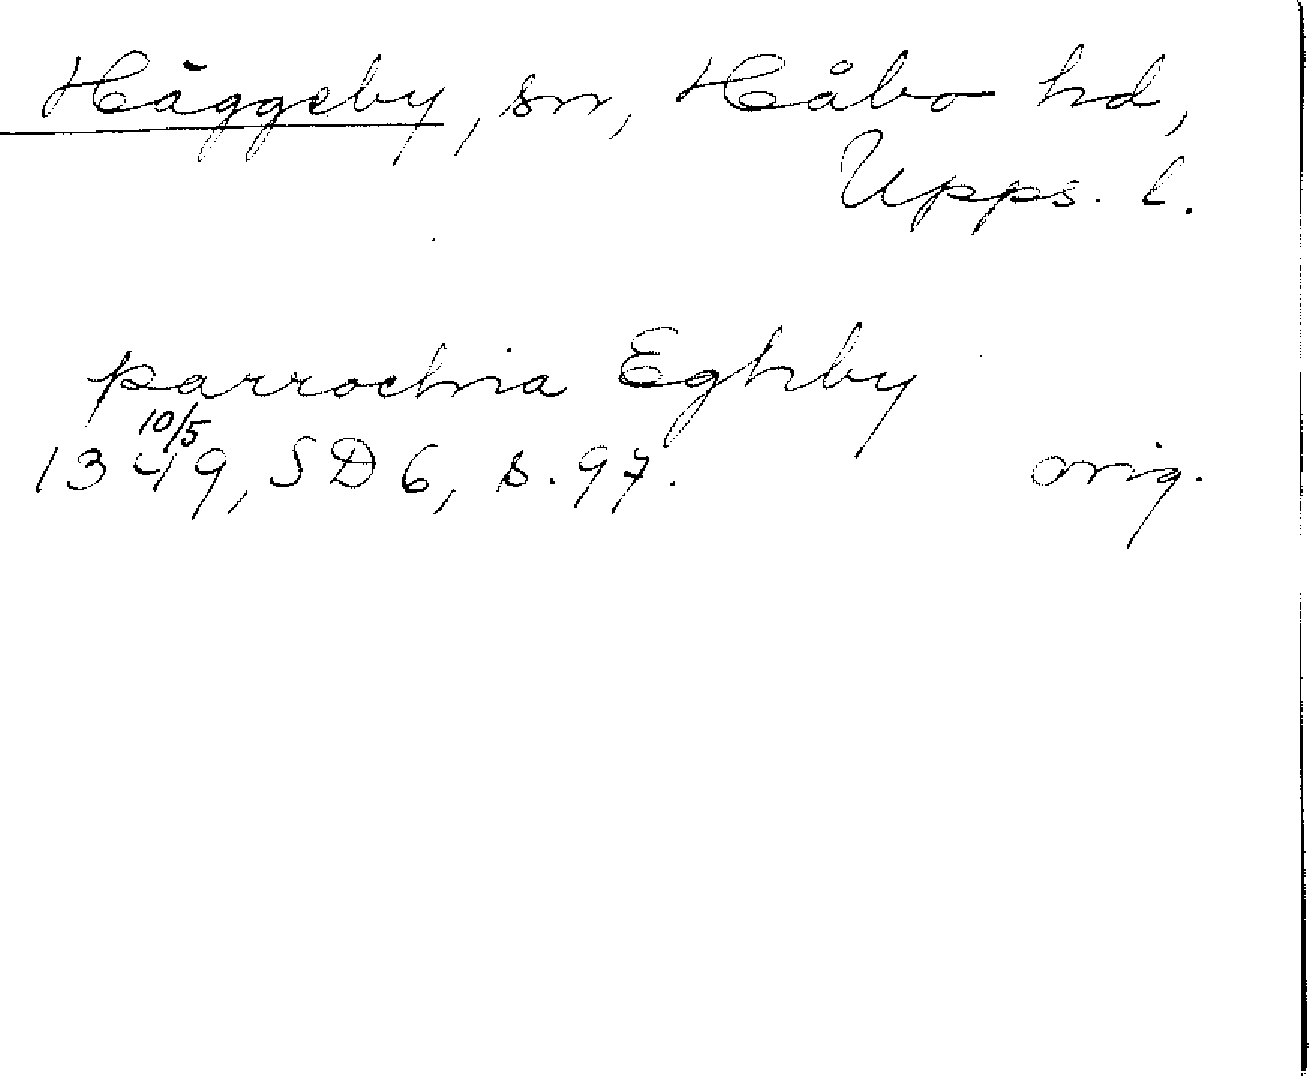 Häggeby, sn, Håbo hd,
Upps. l.
parrochia Eghby
10/5
1349, SD 6, s. 97. orig.